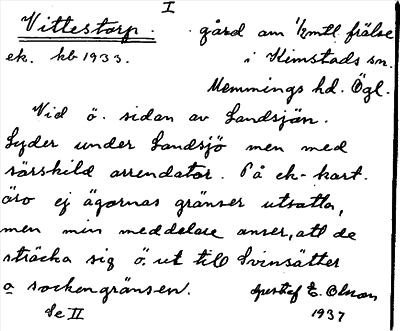 I
Vittestorp. gård om 1/2 mtl. frälse
ek. kb 1933. i Kimstads sn.
Memmings hd. Ögl.
Vid ö. sidan av Landsjön.
Lyder under Landsjö men med
särskild arrendator. På ek-kart.
äro ej ägornas gränser utsatta,
men min meddelare anser, att de
sträcka sig ö. ut till Svinsätter
o sockengränsen. Gustaf E. Olsson
Se II 1937